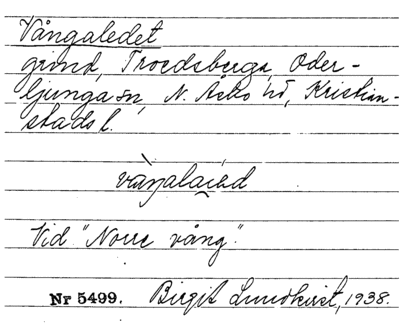 Vångaledet
grind, Troedsberga, Oder-
ljunga sn, N. Åsbo hd, Kristian-
stads l.
Vid "Norre vång".
Nr 5499. Birgit Lundkvist, 1938.